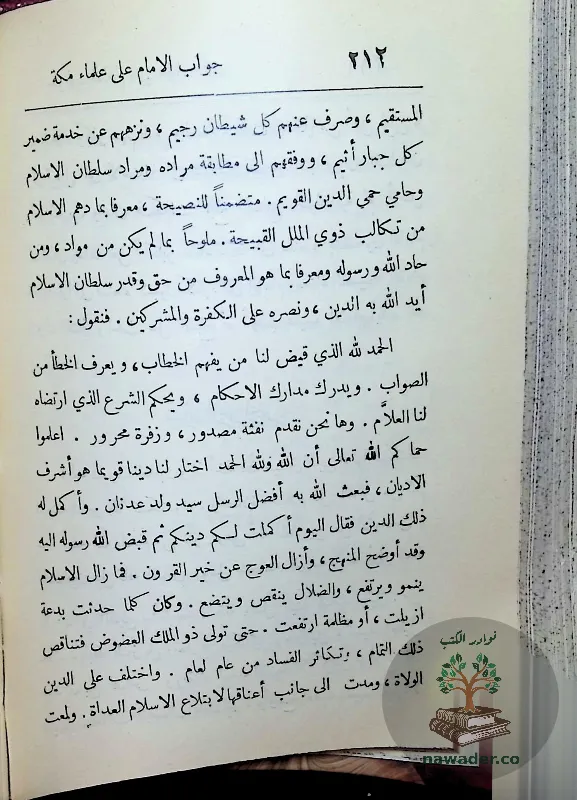 جواب الامام على علماء مكة
٢١٢
المستقيم ، وصرف عنهم كل شيطان رجيم ، ونزههم عن خدمة ضمير
كل جبار أثيم ، ووفقهم الى مطابقة مراده ومراد سلطان الاسلام
وحامي حمى الدين القويم . متضمناً للنصيحة ، معرفا بما دهم الاسلام
من تكالب ذوي الملل القبيحة . ملوحاً بما لم يكن من مواد ، ومن
حاد الله ورسوله ومعرفا بما هو المعروف من حق وقدر سلطان الاسلام
أيد الله به الدين ، ونصره على الكفرة والمشركين . فنقول :
الحمد لله الذي قيض لنا من يفهم الخطاب ، ويعرف الخطأ من
الصواب . ويدرك مدارك الاحكام ، ويحكم الشرع الذي ارتضاه
لنا العلاَّم . وها نحن نقدم نفثة مصدور ، وزفرة محرور . اعلموا
حماكم الله تعالى أن الله ولله الحمد اختار لنا دينا قويما هو أشرف
الاديان ، فبعث الله به أفضل الرسل سيد ولد عدنان . وأكمل له
ذلك الدين فقال اليوم أكملت لكم دينكم ثم قبض الله رسوله اليه
وقد أوضح المنهج ، وأزال العوج عن خير القرون . فما زال الاسلام
ينمو ويرتفع ، والضلال ينقص ويتضع . وكان كلما حدثت بدعة
ازيلت ، أو مظلمة ارتفعت . حتى تولى ذو الملك العضوض فتناقص
ذلك التمام ، وتكاثر الفساد من عام لعام . واختلف على الدين
الولاة ، ومدت الى جانب أعناقها لابتلاع الاسلام العداة . ولمعت
نوادر الكتب
nawader.co